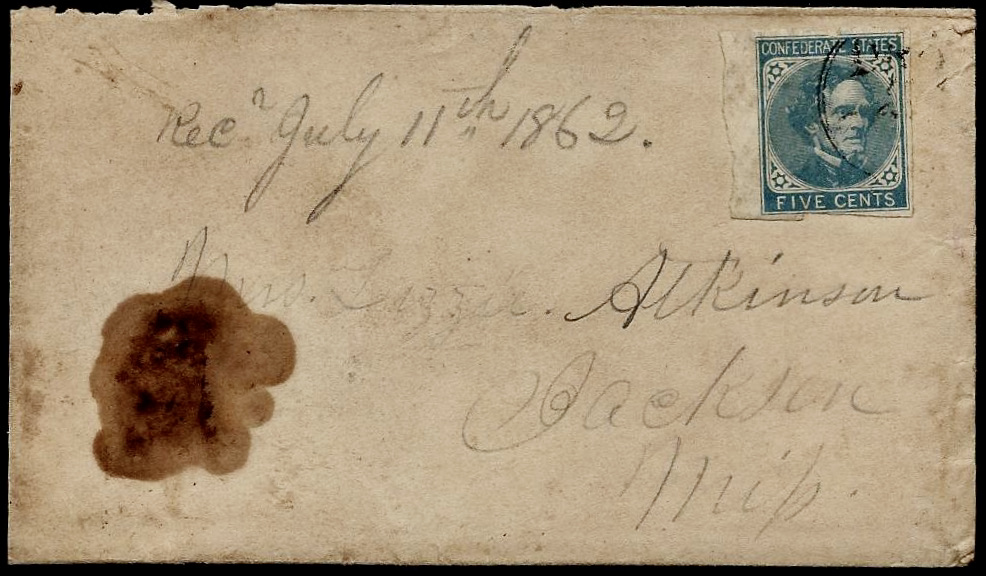 CONFEDERATE STATES
FIVE CENTS
Recd July 11th 1862.
Mrs. Lizzie. Atkinson
Jackson
Miſs.